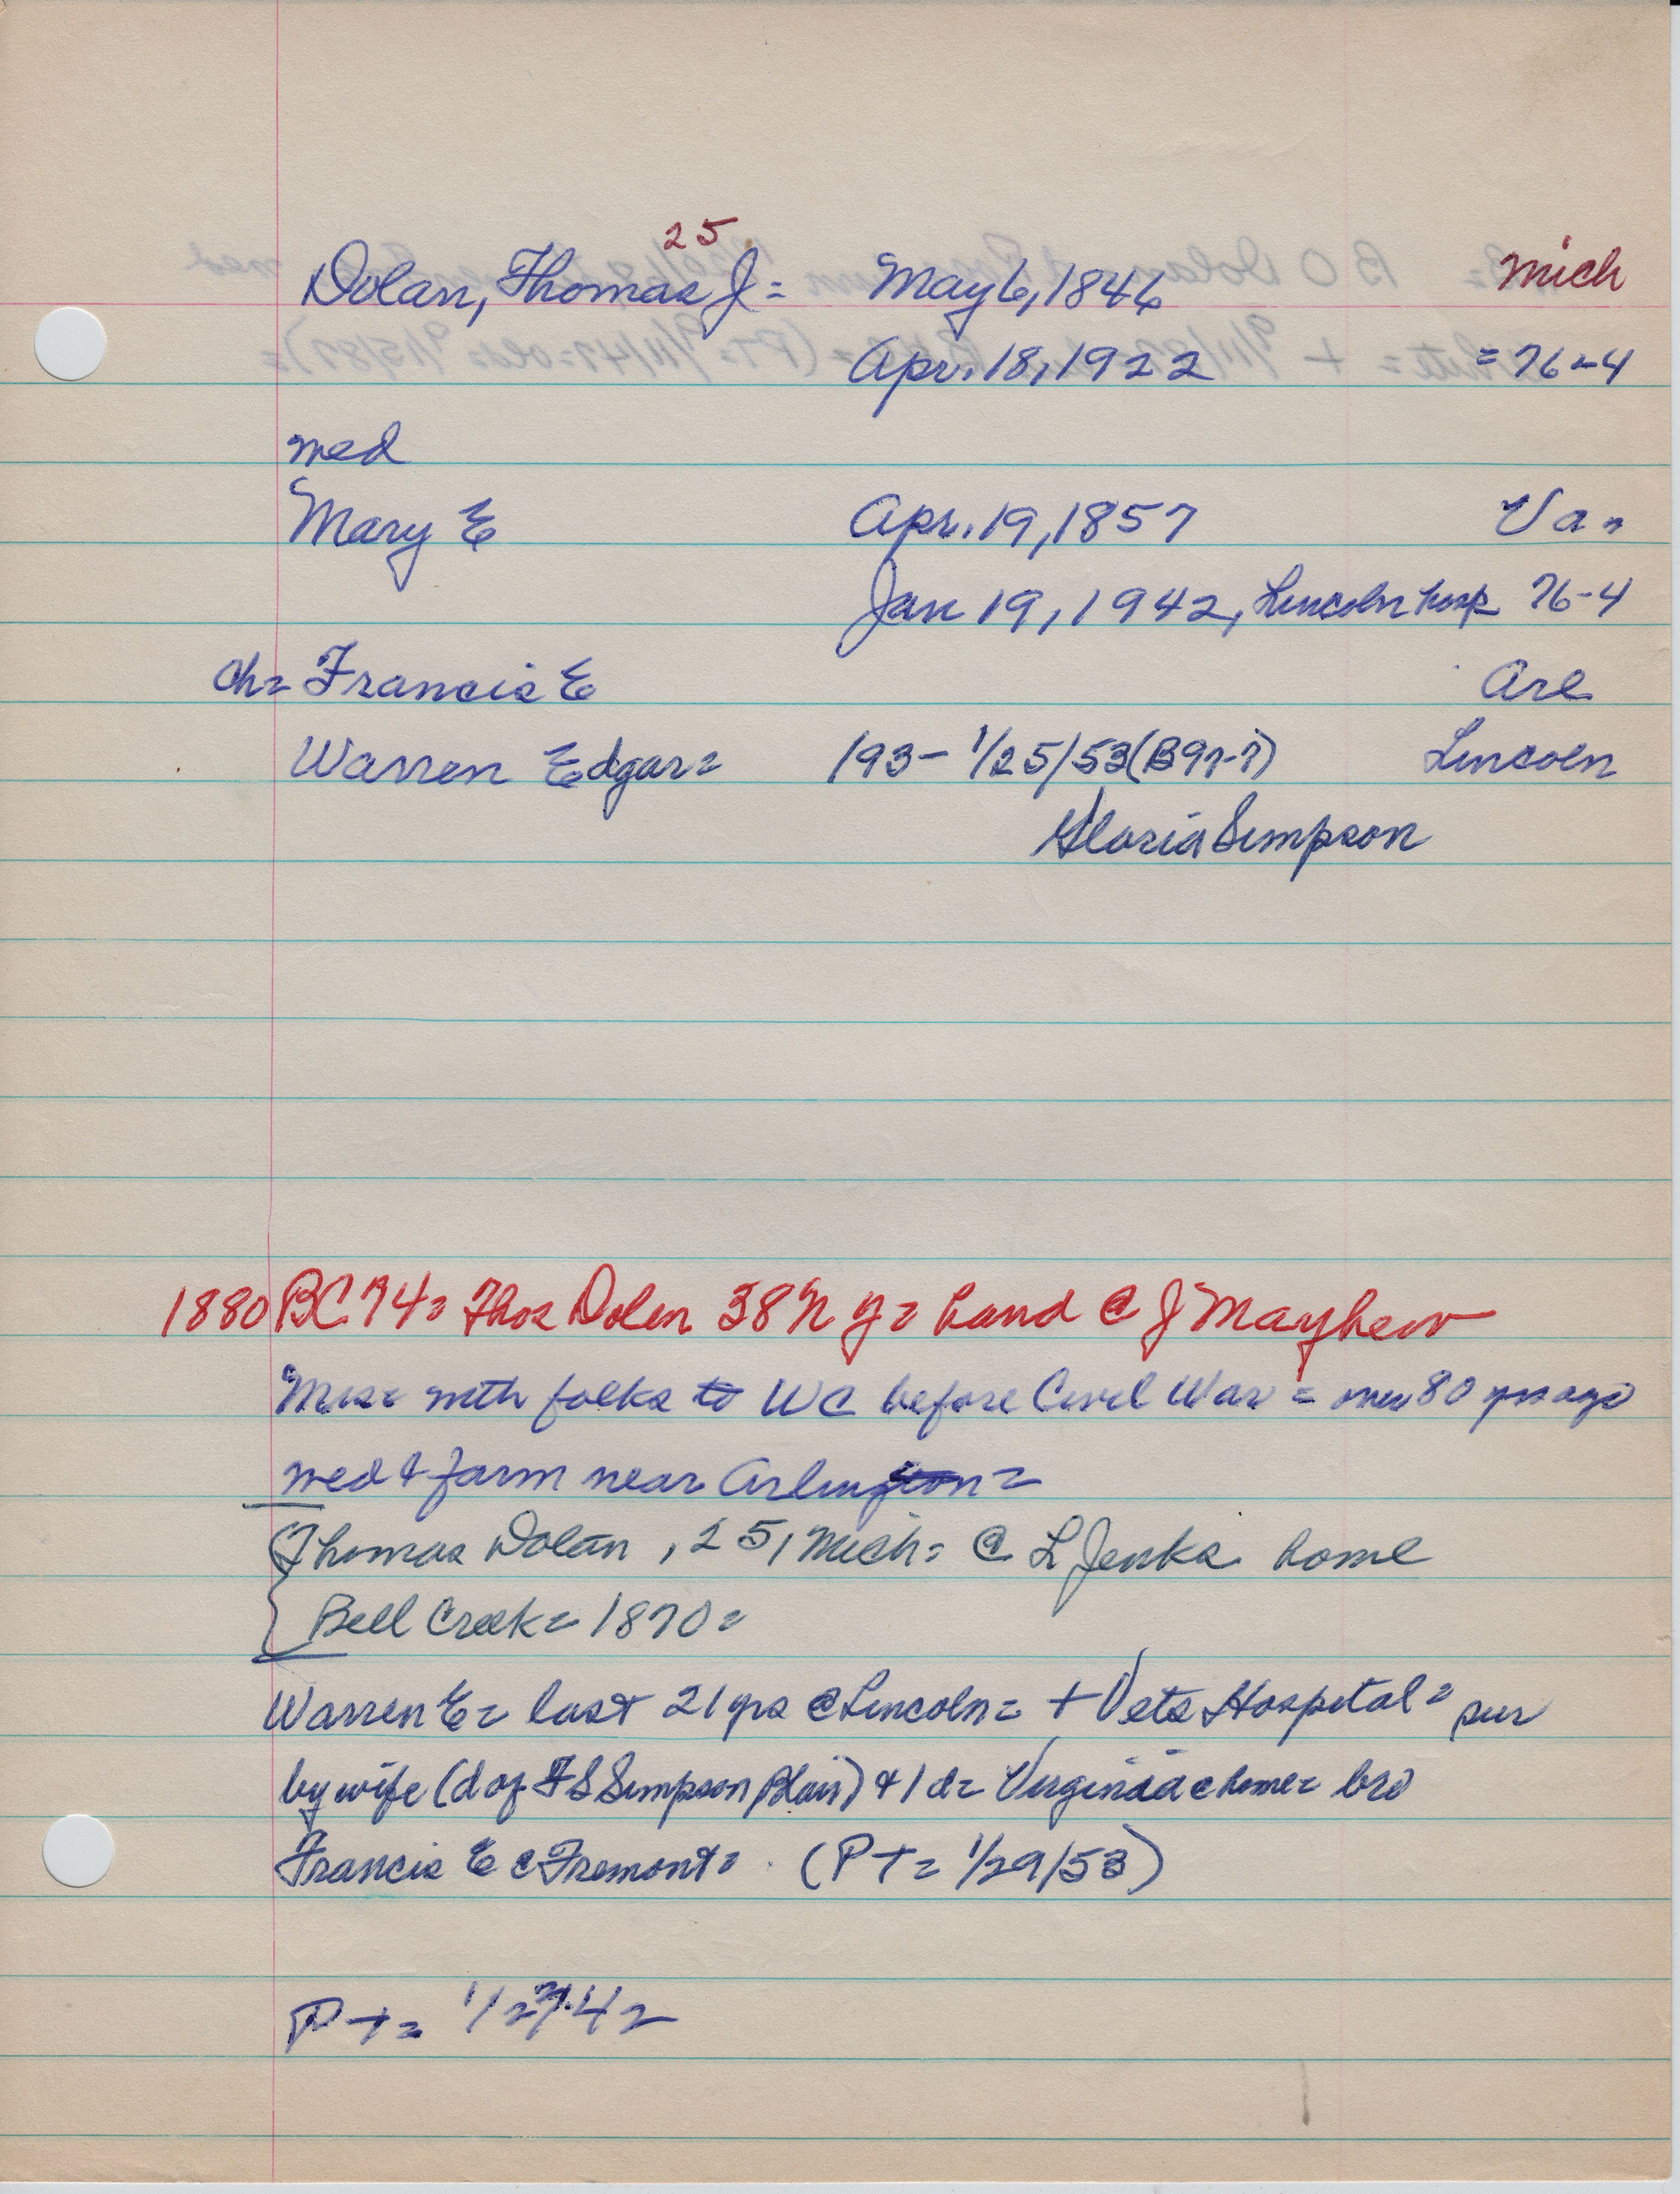 25
Dolan, Thomas J = May 6, 1846 Mich
Apr. 18, 1922 = 76-4
med
Mary E Apr. 19, 1857 Va =
Jan 19, 1942, Lincoln hosp 76-4
Ch = Francis E Arl
Warren Edgar = /93 - 1/25/53 (B97-7) Lincoln
Gloria Simpson
1880 BC 74 = Thos Dolen 38 N Y = hand @ J Mayhew
Mrs = with folks to WC before Civil War = over 80 yrs ago
med & farm near Arlington =
Thomas Dolan, 25, Mich = @ L Jenks home
Bell Creek = 1870 =
Warren E = last 21 yrs @ Lincoln = + Vets Hospital = sur
by wife (d of F S Simpson Blair) & 1 d = Virginia @ home = bro
Francis E @ Fremont = (PT = 1/29/53)
PT = 1/27/42